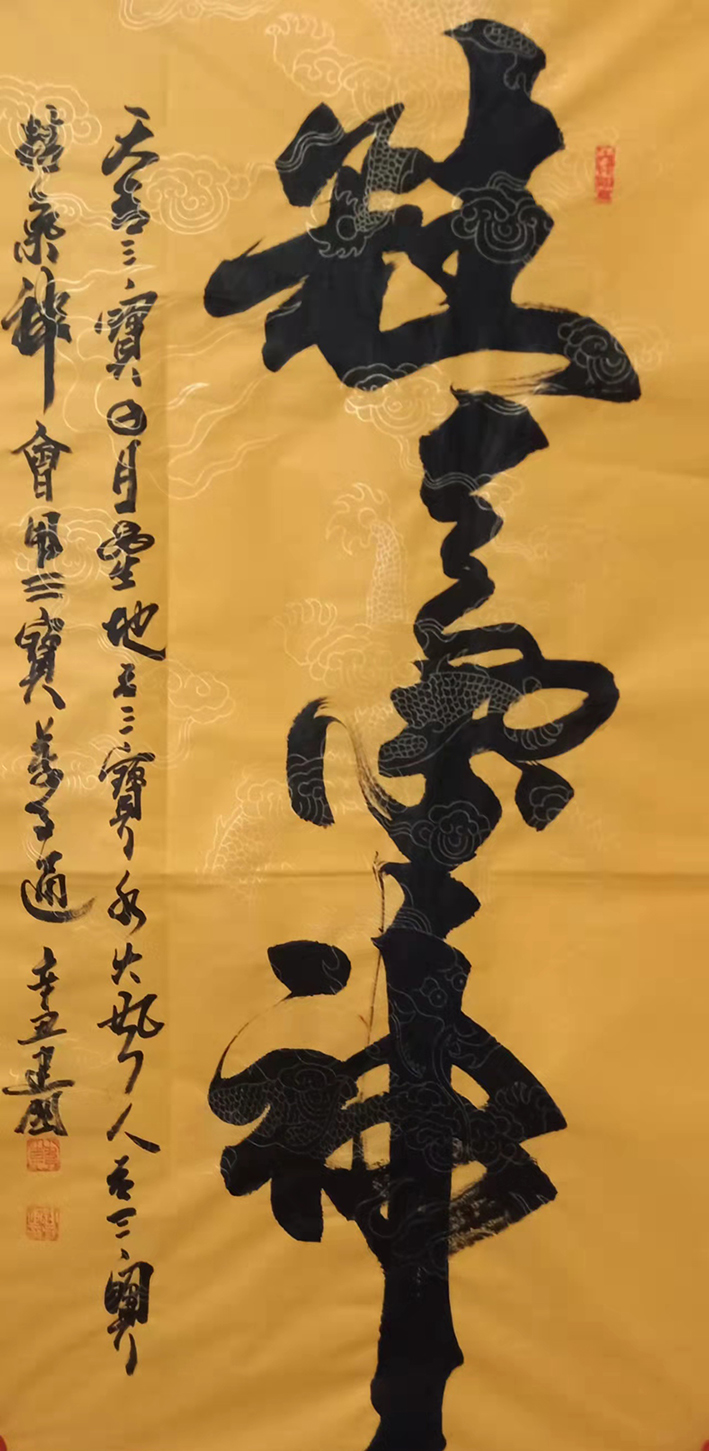 精氣神
天有三寶日月星地有三寶水火風人有三寶
精氣神會用三寶通辛丑建國